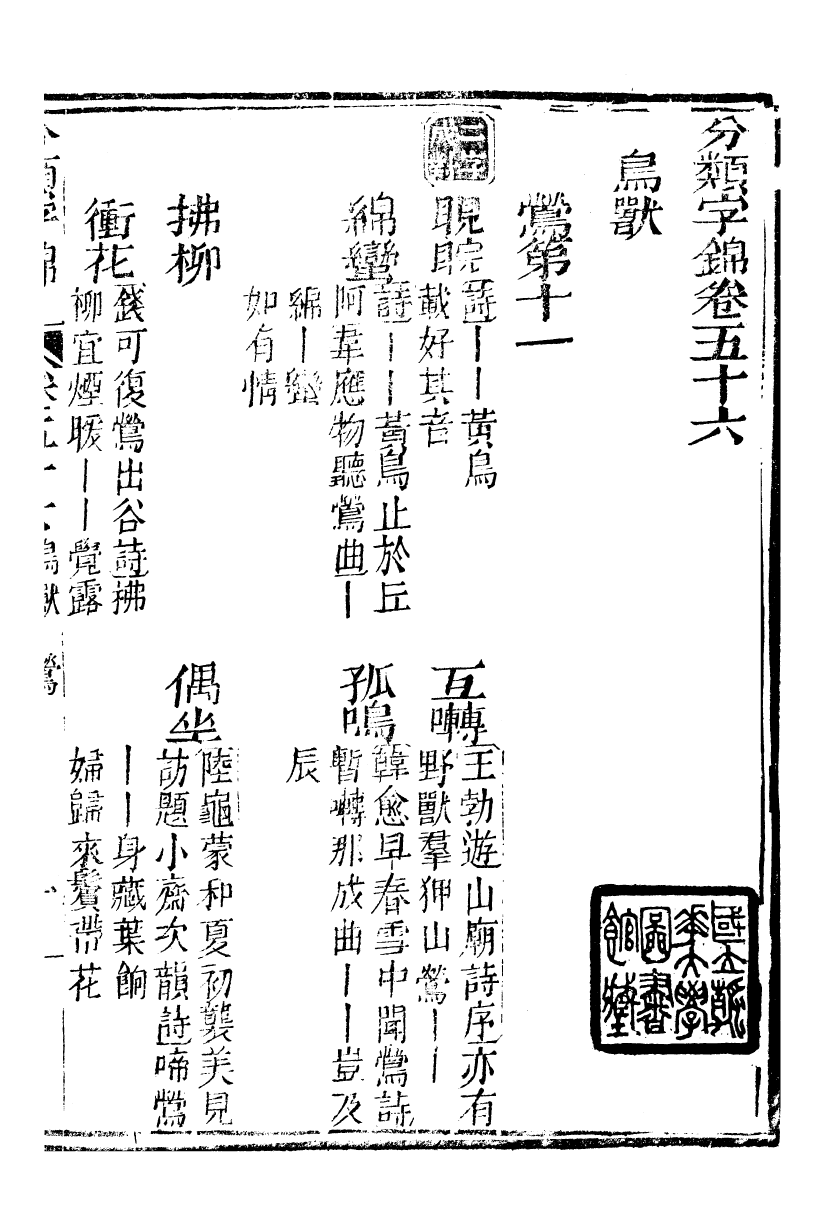 分類字錦卷五十六
鳥獸
鶯第十一
睍睆
詩｜｜黃鳥
載好其音
互囀
王勃遊山廟詩序亦有
野獸羣狎山鶯｜｜
綿蠻
詩｜｜黃鳥止於丘
阿韋應物聽鶯曲｜
綿｜蠻
如有情
孤鳴
韓愈早春雪中聞鶯詩
暫囀那成曲｜｜豈及
辰
拂柳
偶坐
陸龜蒙和夏初襲美見
訪題小齋次韻詩啼鶯
｜｜身藏葉餉
婦歸來鬢帶花
衝花
錢可復鶯出谷詩拂
柳宜煙暖｜｜覺露
國立清華大學圖書館藏